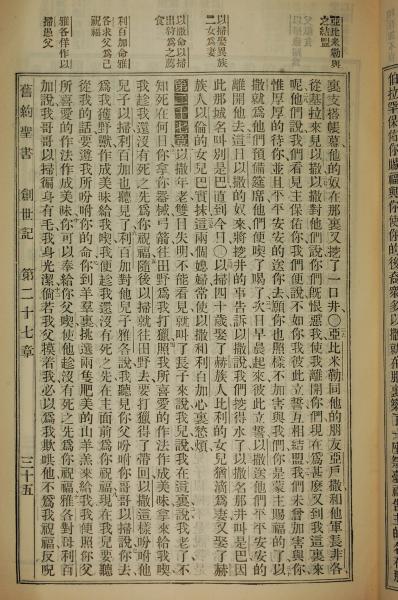 亞比米勒與之結盟
以掃娶異族二女為妻
以撒命以掃出狩為之備食
利百加命雅各求父為己祝福
雅各佯作以掃愚父
裏支搭帳幕他的奴在那裏又挖了一口井○亞比米勒同他的朋友亞戶撒和他軍長非各
從基拉來見以撒以撒對他們說你們既恨惡我使我離開你們現在為甚麽又到我這裏來
呢他們說我們看見主保佑你我們便說不如你我彼此立誓互相結盟我們未曾加害與你
惟厚厚的待你並且平平安安的送你去願你也照樣不加害與我們你是蒙主賜福的了以
撒就為他們預備筵席他們便喫了喝了次日早晨起來彼此立誓以撒送他們平平安安的
離開他去這日以撒的奴來將挖井的事告訴以撒說我們挖得水了以撒名那井叫是巴因
此那城名叫別是巴直到今日○以掃四十歲娶了赫族人比利的女兒猶滴為妻又娶了赫
族人以倫的女兒巴實抹這兩個媳婦常使以撒和利百加心裏愁煩
第二十七章以撒年老雙目失明不能看見就叫了長子來說我兒說我在這裏說我老了不
知死在何日你拿你器械弓箭往田野去為我打獵照我所喜愛的作法作成美味拿來給我喫
我趁我還沒有死之先為你祝福隨後以掃就往田野去要打獵得了帶回以撒這樣吩咐他
兒子以掃利百加也聽見了利百加對他兒子雅各說我聽見你父吩咐你哥哥以掃說你去
為我獲野獸作成美味給我喫我便趁我還沒有死之先在主面前為你祝福現在我兒要聽
從我的話要遵我所吩咐你的命你到羊羣裏挑選兩隻肥美的山羊羔來給我我便照你父
所喜愛的作法作成美味你可以奉給你父喫使他趁沒有死之先為你祝福雅各對母利百
加說我哥哥以掃徧身有毛我身光潔倘若我父摸着我必以為我欺哄他不為我祝福反呪
舊約聖書 創世記 第二十七章 三十五